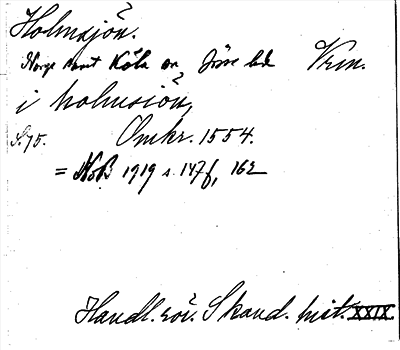 Holmsjön.
Norge samt Köla sn Jösse hd Vrm.
i holmsiön,
S. 75. Omkr. 1554.
= NoB 1919 s. 147 f, 162
Handl. rör. Skand. hist. XXIX.